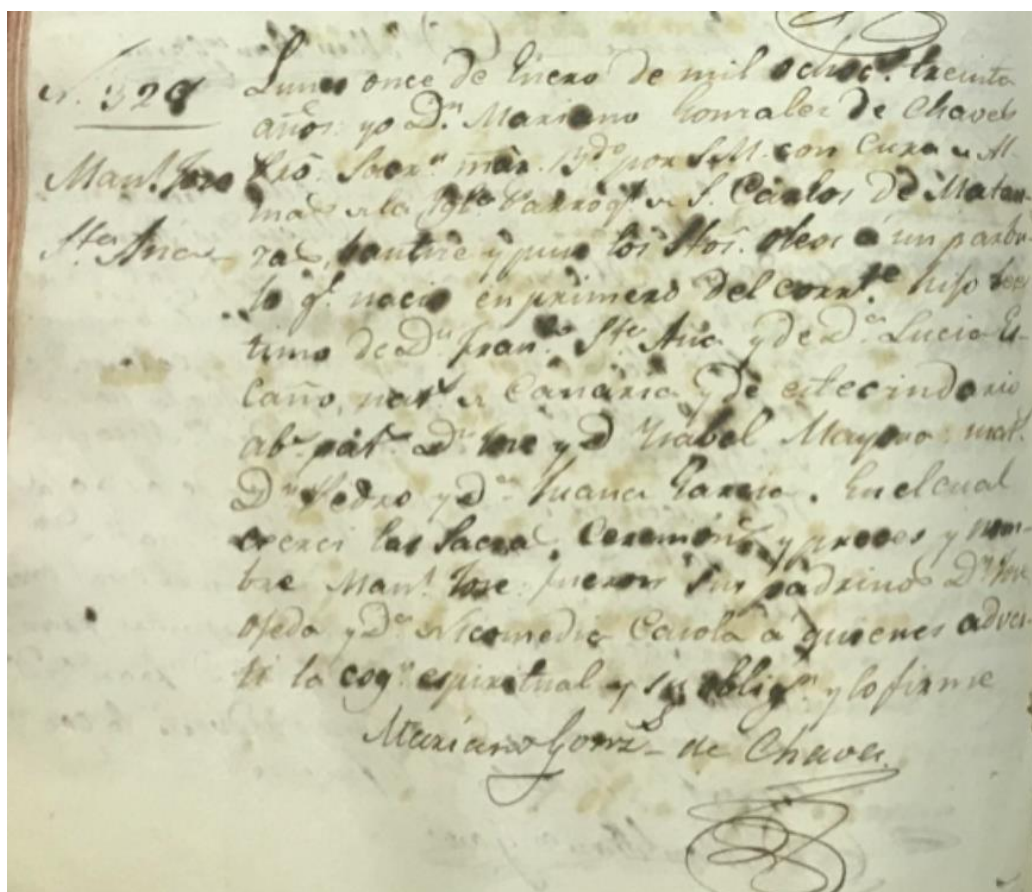 N. 329
Man.l Jose
Sta Ana
Lunes once de Enero de mil ochoc.s treinta
años: yo D.n Mariano Gonzalez de Chaves
Pbro. por S.M. con Cura de Al
mas de la Igla Parroql de S. Carlos de Matan
zas, bautisé y puse los Stos. oleos á un parbu
lo q.e nació en primero del corr.te hijo legi
timo de D.n Fran.co Sta Ana y de D.a Lucia Es
caño, nat.s de Canaria y de este cindario
ab.s pat.s D.n Jose y D Ysabel Mayor mat.
D.n Pedro y D.a Juana Garcia. En el cual
exerci las Sacras Ceremon.s y preces y nom
bre Man.l Jose: fueron sus padrinos D.n Jose
Ojeda y D.a Nicomedia a quienes adver
ti la cog.n espiritual y su oblig.n y lo firme
Mariano Gonz.z de Chaves